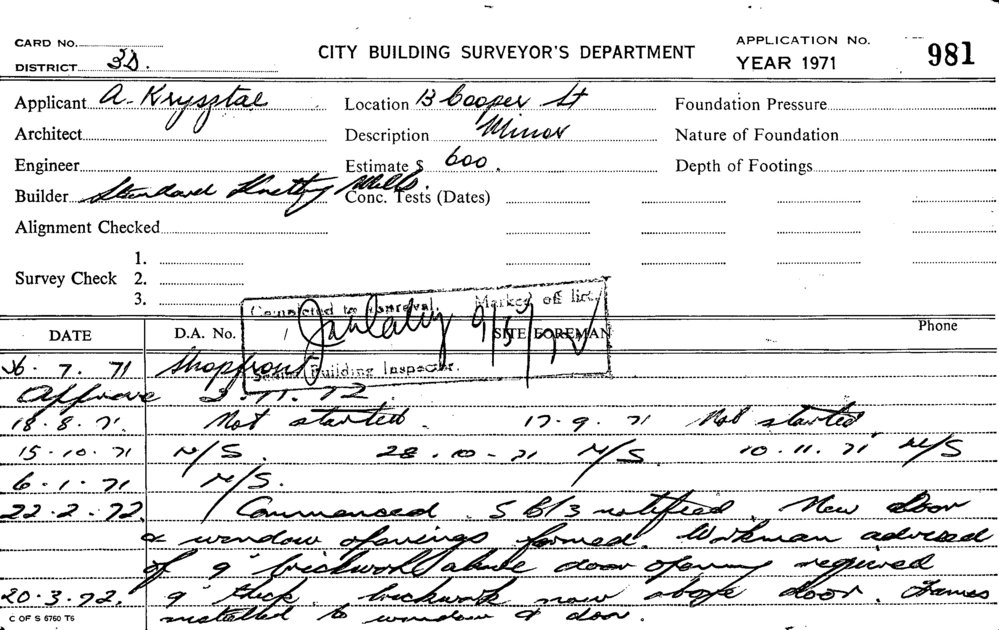 CARD No.
CITY BUILDING SURVEYOR'S DEPARTMENT
APPLICATION No.
981
DISTRICT 3D.
YEAR 1971
Applicant A. Krysztal
Location 13 Cooper St
Foundation Pressure
Architect
Description Minor
Nature of Foundation
Engineer
Estimate $ 600.
Depth of Footings
Builder Standard Knitting Mills.
Conc. Tests (Dates)
Alignment Checked
1.
Survey Check 2.
3.
Completed to Approval. Marked off list.
DATE
D.A. No. /
SITE FOREMAN
Phone
Senior Building Inspector.
26.7.71 Shopfront
Approve 2.11.72.
18.8.71. Not started. 17.9.71 Not started.
15.10.71 N/S. 28.10.71 N/S. 10.11.71 N/S
6.1.71 N/S.
22.2.72. Commenced. S B/3 notified. New door
& window openings formed. Workman advised
of 9" brickwork above door opening required
20.3.72. 9" thick brickwork now above door. Frames
installed to window & door.
C OF S 5760 T5